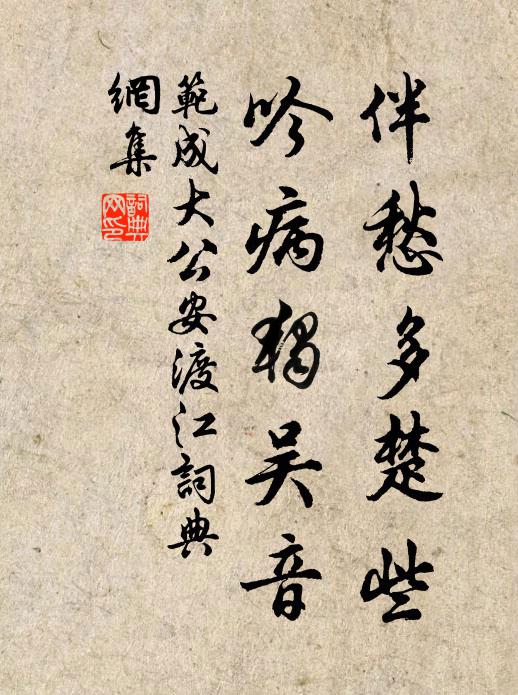 伴愁多楚些
吟病獨吴音
範成大公安渡江詞典
網集
詞典
网印